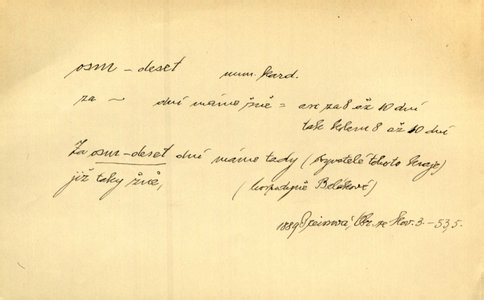 osm – deset num. kard.
za ~ dní máme žně = asi za 8 až 10 dní
tak kolem 8 až 10 dní
Za osm-deset dní máme tady (obyvatelé tohoto kraje)
již taky žně, (hospodyně Bělákové)
1889 Preissová, Obr. ze Slov. 3 – 53,5.